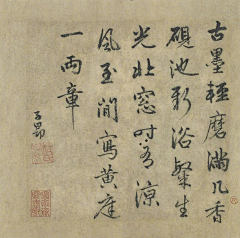 古墨輕磨滿几香
硯池新浴粲生
光北窗時有涼
風至閒寫黃庭
一兩章
子昂